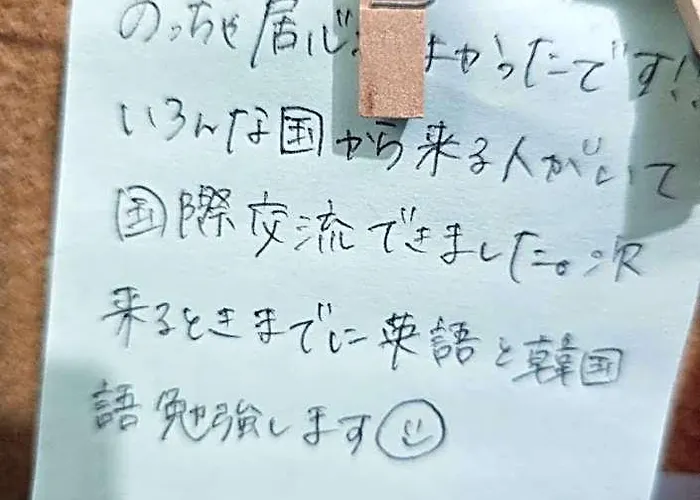 のっちゃ居心 よかったです!
いろんな国から来る人がいて
国際交流できました。次
来るときまでに英語と韓国
語勉強します